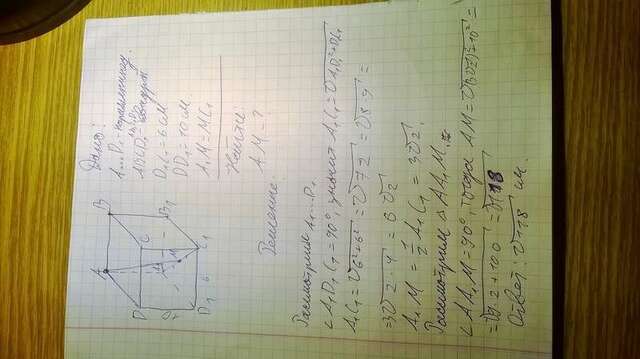 Дано:
A...D₁ - параллелепипед
ABCD - квадрат
D₁C₁ = 6 см
DD₁ = 10 см
A₁M = MC₁
Найти:
AM - ?
A
B
C
D
B₁
C₁
D₁
M
6
Решение.
Рассмотрим A₁...D₁
∠A₁D₁C₁ = 90°, значит A₁C₁ = √A₁D₁²+D₁C₁²
A₁C₁ = √6²+6² = √72 = √8·9 =
= 3√2·4 = 6√2
A₁M = ½ A₁C₁ = 3√2.
Рассмотрим △AA₁M,
∠AA₁M = 90°, тогда AM = √(3√2)²+10² =
= √9·2+100 = √118
Ответ √118 см.